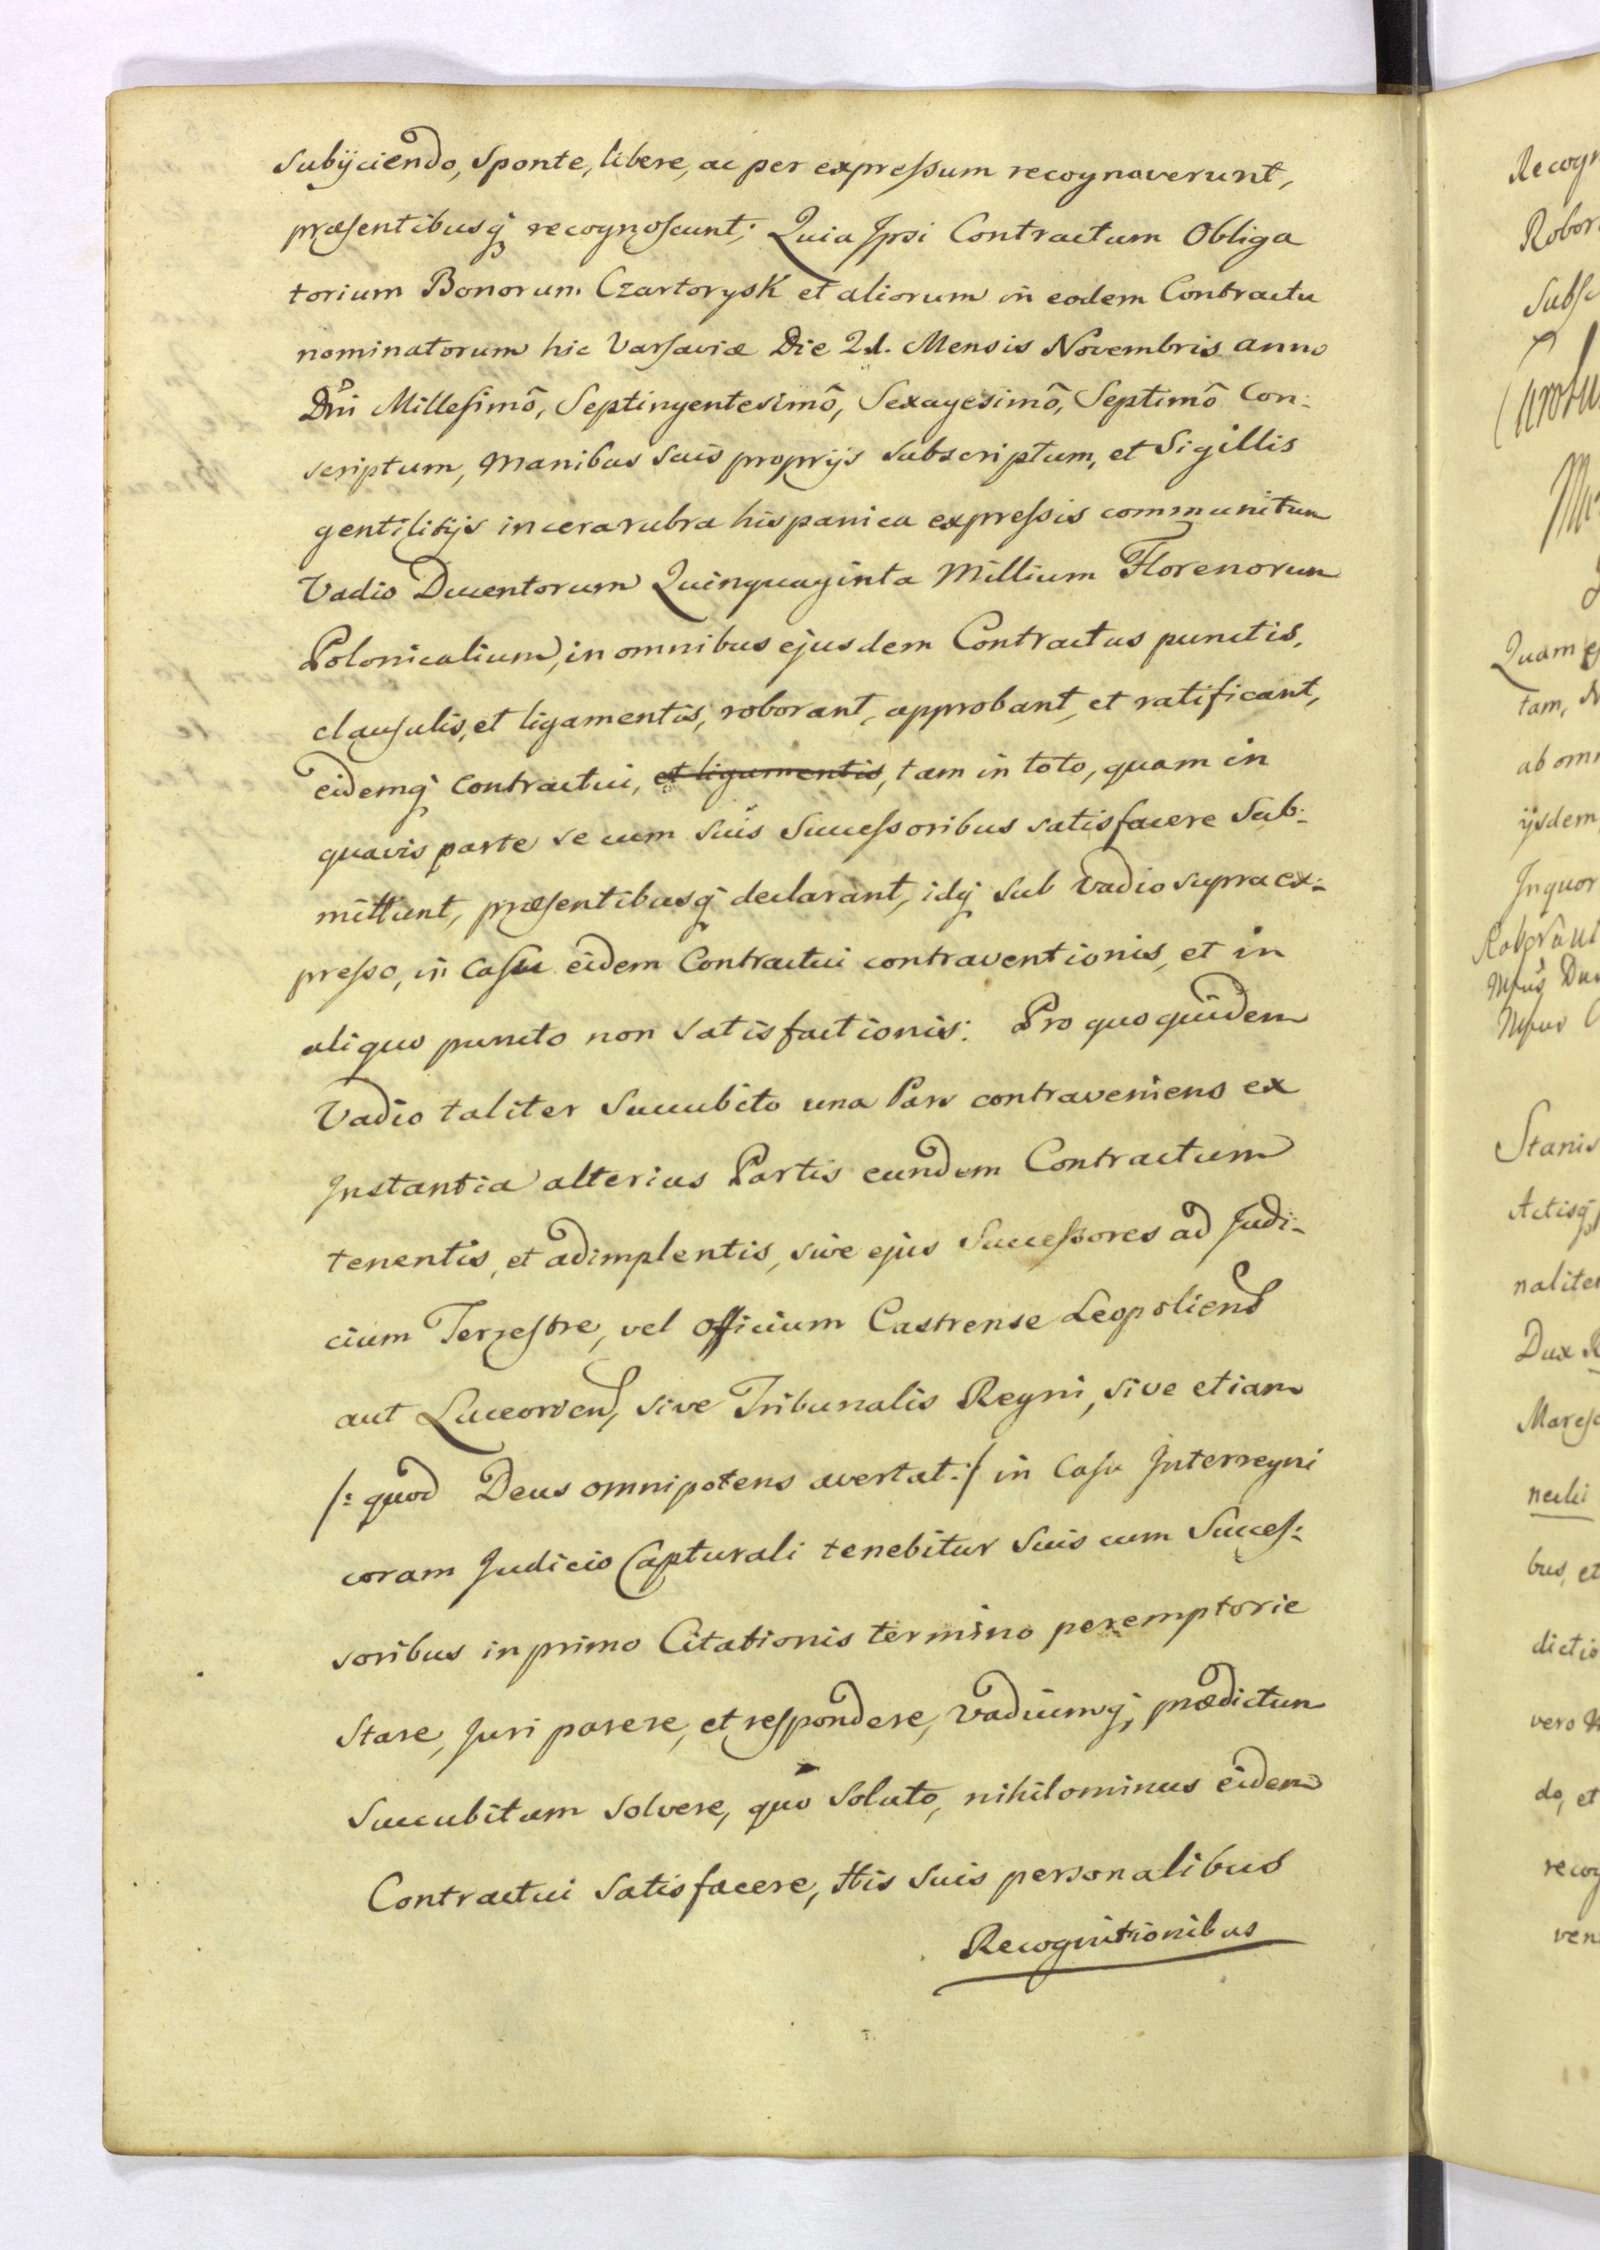 subÿciendo, sponte, libere, ac per expressum recognoverunt,
præsentibusq́ recognoscunt; Quia Ipsi Contractum Obliga
torium Bonorum Czartorysk et aliorum in eodem Contractu
nominatorum hic Varsaviæ Die 2d. Mensis Novembris anno
Dñi Millesimô, Septingentesimô, Sexagesimô, Septimô Con:
scriptum, Manibus suis proprÿs subscriptum, et Sigillis
gentilitÿs in cera rubra hispanica expressis communitum
Vadio Ducentorum Quinquaginta Millium Florenorum
Polonicalium, in omnibus ejusdem Contractus punctis,
clausulis, et ligamentis, roborant, approbant, et ratificant,
eidemq́ Contractui, et ligamentis, tam in toto, quam in
quavis parte se cum suis Successoribus satisfacere Sub:
mittunt, præsentibusq́ declarant, idq́ sub Vadio supra ex:
presso, in Casu eidem Contractui contraventionis, et in
aliquo puncto non satisfactionis: Pro quo quidem
Vadio taliter Succubito una Pars contraveniens ex
Instantia alterius Partis eundem Contractum
tenentis, et adimplentis, sive ejus Successores ad Judi:
cium Terrestre, vel Officium Castrense Leopoliens
aut Luceoriens, sive Tribunalis Regni, sive etiam
/: quod Deus omnipotens avertat :/ in Casu Interregni
coram Judicio Capturali tenebitur Suis cum Succes:
soribus in primo Citationis termino peremptorie
Stare, Juri parere, et respondere, Vadiumq́; prædictum
Succubitum solvere, quo soluto, nihilominus eidem
Contractui Satisfacere, His suis personalibus
Recognitionibus
Recogn
Robor
Subsc
Quam ej
tam,
ab omn
ÿsdem
In quor
Roborant
Stanis
Actisq́
naliter
Dux
Maresc
neuli
bus, et
dictio
vero
do, et
recog
ven